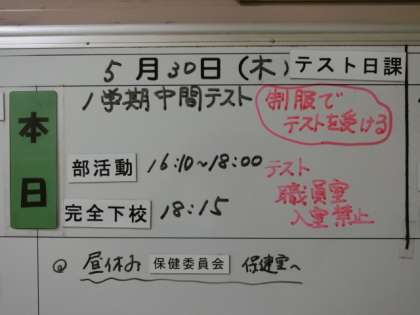 5月30日(木) テスト日課
本日
1学期中間テスト
制服で
テストを受ける
部活動 16:10~18:00
完全下校 18:15
テスト
職員室
入室禁止
昼休み 保健委員会 保健室へ